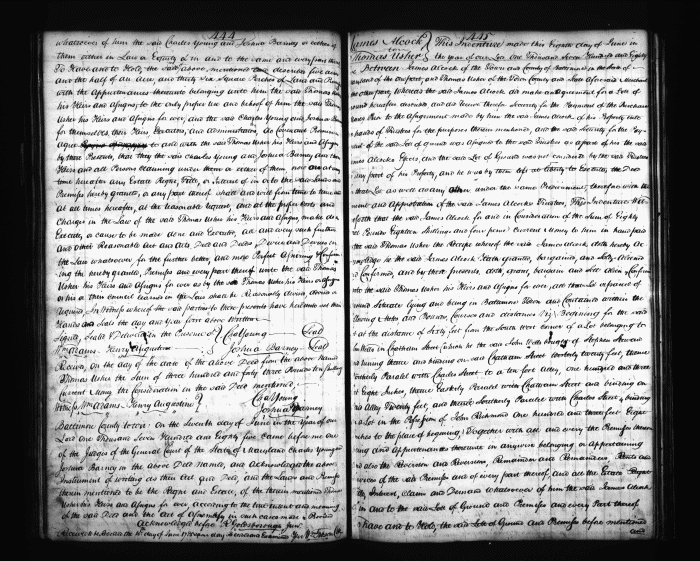 444
whatsoever of him the said Charles Young and Joshua Barney or either of
them either in Law or Equity of in and to the same and every part thereof
To Have and to Hold the said above mentioned and described five and
and the half of an acre, and thirty six Square Perches of Land and Premises
with the appurtenances thereunto belonging unto him the said Thomas Usher
his Heirs and Assigns, to the only proper use and behoof of him the said Thomas
Usher his Heirs and Assigns for ever, and the said Charles Young and Joshua Barney
for themselves, their Heirs, Executors, and Administrators, do Covenant Promise and
Agree to and with the said Thomas Usher his Heirs and Assigns
by these Presents, that they the said Charles Young and Joshua Barney and their
Heirs and all Persons claiming under them or either of them now or at any
time hereafter any Estate Right, Title, or Interest of in or to the said Lands and
Premises hereby granted, or any part thereof shall and will from time to time and
at all times hereafter, at the reasonable request, and at the proper costs and
Charges in the Law of the said Thomas Usher his Heirs and Assigns, make, do &
Execute, or cause to be made done and Executed, all and every such further
and other Reasonable Act and Acts, Deed and Deeds, Device and Devices in
the Law whatsoever for the further better, and more Perfect assuring & Confirm
ing the hereby granted Premises and every part thereof unto the said Thomas
Usher his Heirs and Assigns for ever as by the said Thomas Usher his Heirs or Assigns
or his or their Council learned in the Law shall be Reasonably devised, advised or
required. In Witness whereof the said parties to these presents have hereunto set their
Hands and Seals the day and year first above Written
Signed, Sealed & Delivered in the Presence of Cha Young Seal
Wm Adams. Henry Augustine Joshua Barney Seal
Received, on the day of the date of the above Deed from the above named
Thomas Usher the Sum of three hundred and forty three Pounds ten Shilling
Current Money the Consideration in the said Deed mentioned
Cha Young
Witness Wm Adams. Henry Augustine Joshua Barney
Baltimore County Town: On the Seventh day of June in the Year of our
Lord One Thousand Seven Hundred and Eighty five came before me one
of the Judges of the General Court of the State of Maryland Charles Young and
Joshua Barney in the above Deed named, and Acknowledged the above
Instrument of writing as their Act and Deed, and the Lands and Premises
therein mentioned to be the Right and Estate, of the therein mentioned Thomas
Usher his Heirs and Assigns for ever according to the true intent and meaning
of the said Deed and the Act of Assembly in such cases made & Provided
Acknowledged before R Goldsborough junr
445
James Alcock
to
Thomas Usher
This Indenture made this Eighth day of June in
the year of our Lord One Thousand Seven Hundred and Eighty
Between James Alcock of the Town and County of Baltimore in the State of
Maryland of the one part, and Thomas Usher of the Town County and State aforesaid Merchant
the other part, Whereas the said James Alcock did make an Agreement for a Lot of
Ground hereafter described and did secure thereto Security for the Payment of the Purchase
Money Prior to the Assignment made by him the said James Alcock of his Property unto
hands of Trustees for the purposes therein mentioned, and the said Security for the Pay
ment of the said Lot of ground was assigned to the said Trustees as a part of his the said
James Alcocks Effects and the said Lot of Ground was not conveyed by the said Trustees
any part of his Property, and he was by them left at liberty to Execute, the Deed
Lot as well as any other under the same Predicament, therefore with the
and Approbation of the said James Alcocks Trustees, This Indenture Wit-
nesseth that the said James Alcock for and in Consideration of the Sum of Eighty
Pounds Eighteen Shillings and four pence Current Money to him in hand paid
the said Thomas Usher the Receipt whereof the said James Alcock doth hereby ac
knowledge he the said James Alcock Hath granted, bargained, and Sold, Aliened
and Confirmed, and by these presents, doth, grant, bargain and Sell Alien & Confirm
unto the said Thomas Usher his Heirs and Assigns for ever, all that Lot or parcel of
Ground Situate lying and being in Baltimore Town and Contained within the
following Metes and Bounds, Courses and distances Viz Beginning for the said
at the distance of Sixty feet from the South West corner of a Lot belonging to
John Wells in Chatham Street which he the said John Wells bought of Stephen Steward
and running thence and binding on said Chatham Street Westerly twenty feet, thence
Northerly Parallel with Charles Street to a ten foot Alley, one hundred and three
feet Eight Inches, thence Easterly Parallel with Chatham Street and binding on
said Alley Twenty feet, and thence Southerly Parallel with Charles Street & binding
on a Lot in the Possession of John Richmond One hundred and three feet Eight
Inches to the place of beginning; Together with all and every the Premises therein
and Appurtenances thereunto in anywise belonging or appertaining
And also the Reversion and Reversions, Remainder and Remainders, Rents and
Services of the said Premises and of every part thereof, and all the Estate Right
Title, Interest, Claim and Demand whatsoever of him the said James Alcock
in and to the said Lot of Ground and Premises and every Part thereof
To have and to Hold, the said Lots of Ground and Premises before mentioned
and